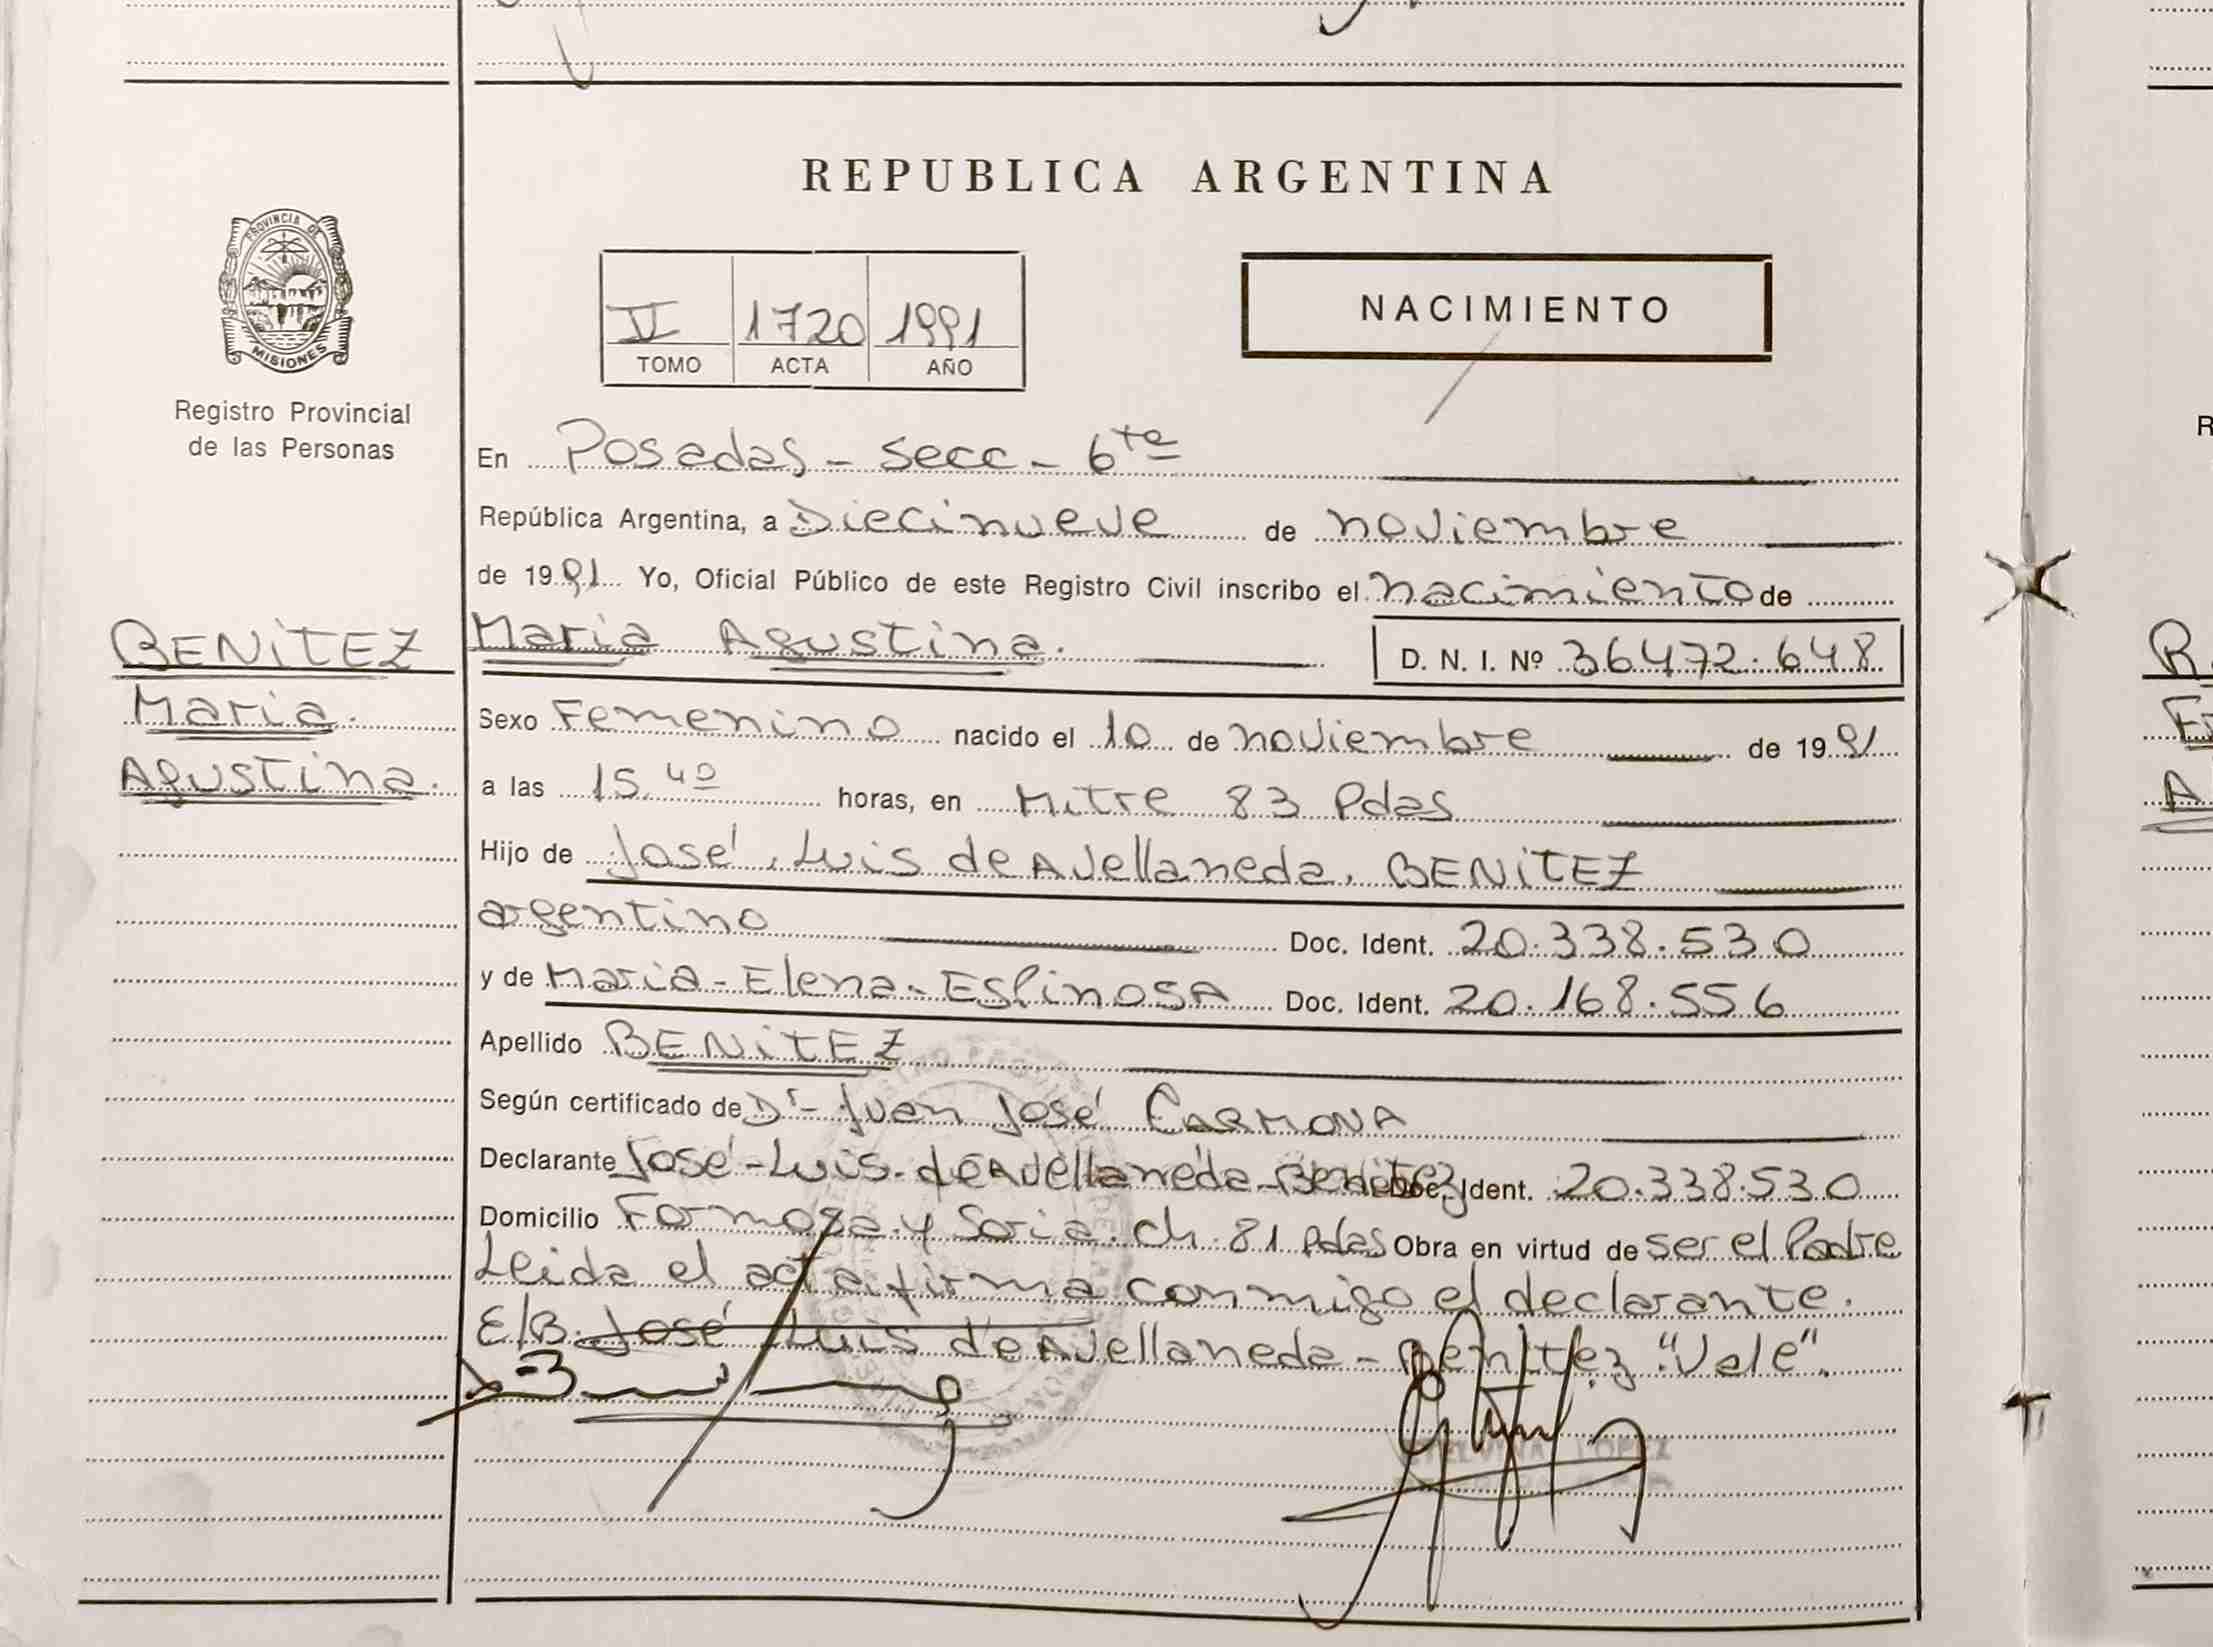 REPUBLICA ARGENTINA
PROVINCIA DE
MISIONES
Registro Provincial
de las Personas
II 1720 1991
TOMO ACTA AÑO
NACIMIENTO
En Posadas - secc - 6ta
República Argentina, a Diecinueve de noviembre
de 1991 Yo, Oficial Público de este Registro Civil inscribo el nacimiento de
BENITEZ
Maria
Agustina.
Maria Agustina. D. N. I. Nº 36472.648
Sexo Femenino nacido el 10 de noviembre de 1991
a las 15.40 horas, en Mitre 83 Pdas
Hijo de José, Luis de Avellaneda, BENITEZ
argentino Doc. Ident. 20.338.530
y de Maria - Elena - EspinosA Doc. Ident. 20.168.556
Apellido BENITEZ
Según certificado de Dr - Juan José CARMONA
Declarante José - Luis - de Avellaneda - Benitez Doc. Ident. 20.338.530
Domicilio Formosa y Soria. ch. 81 Pdas Obra en virtud de ser el Padre
Leida el acta firma conmigo el declarante.
E/B. José Luis de Avellaneda - Benitez "Vale".
LOPEZ
R